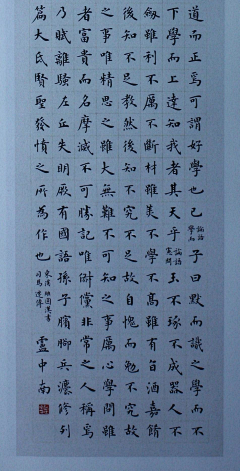 道而正焉可謂好學也已論語學而子曰默而識之學而不
下學而上達知我者其天乎論語憲問玉不琢不成器人不
劍雖利不厲不斷材雖美不學不高雖有旨酒嘉餚
後知不足教然後知不究不足故自愧而勉不究故
之事唯精思之大無難不可知之事厲心學問雖
者富貴而名摩滅不可勝記唯俶儻非常之人稱焉
乃賦離騷左丘失明厥有國語孫子臏腳兵灋修列
篇大氐賢聖發憤之所為作也東漢班固漢書司馬遷傳 盧中南